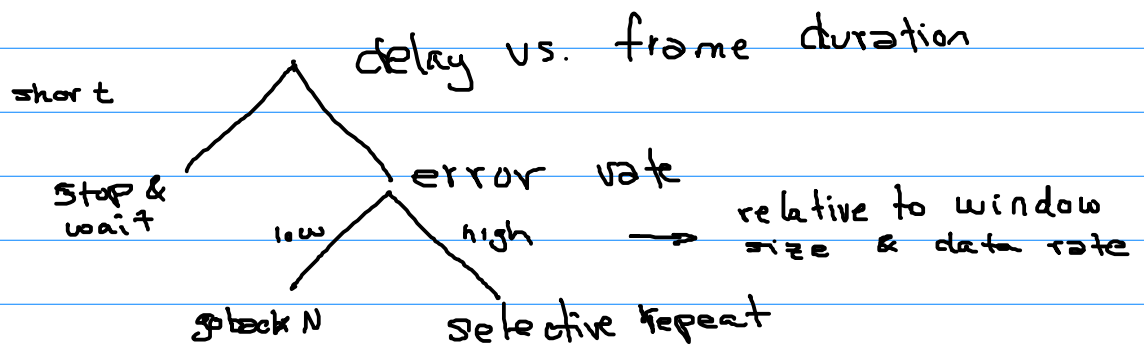 delay vs. frame duration
short
stop &
wait
error rate
low
high
→ relative to window
size & data rate
goback N
selective repeat